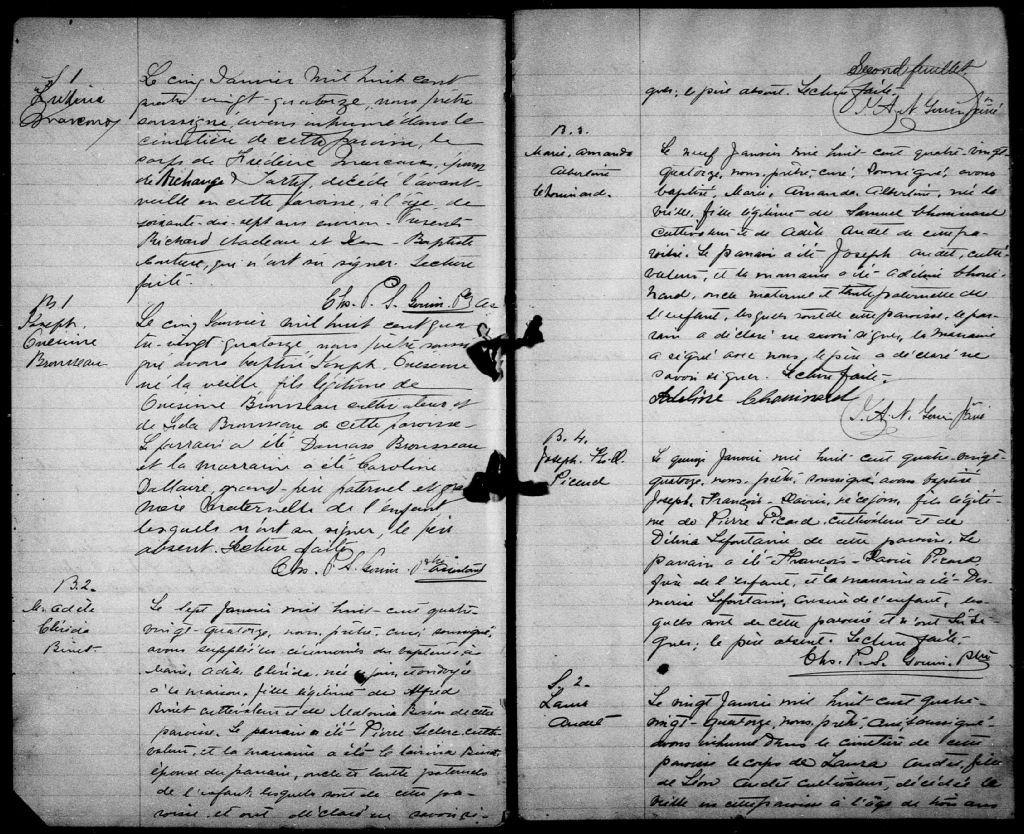 S. 1
Frédéric
Marcoux
Le cinq Janvier mil huit cent
quatre-vingt-quatorze, nous, prêtre
soussigné, avons inhumé dans le
cimetière de cette paroisse, le
corps de Frédéric Marcoux, époux
de Archange décédé l'avant-
veille en cette paroisse, à l'age de
soixante-dix-sept ans environ. Présents
Richard Nadeau et Jean-Baptiste
Couture, qui n'ont su signer. Lecture
faite.
Chs. P. S. Gouin. Ptre
B. 1
Joseph
Onésime
Brousseau
Le cinq Janvier mil huit cent qua
tre-vingt-quatorze, nous prêtre sous
gné avons baptisé Joseph, Onésime
né la veille, fils légitime de
Onésime Brousseau cultivateur et
de Léda Brousseau de cette paroisse.
Le parrain a été Damase Brousseau
et la marraine a été Caroline
Dallaire, grand-père paternel et grand
mère maternelle de l'enfant
lesquels n'ont su signer, le père
absent. Lecture faite
Chs. P. S. Gouin. Ptre
B. 2.
M. Adèle
Clérida
Binet
Le sept Janvier mil huit-cent quatre
vingt-quatorze, nous, prêtre-curé, soussigné,
avons suppléé les cérémonies du baptême à
Marie, Adèle, Clérida, née ce jour, et ondoyée
à la maison, fille légitime de Alfred
Binet cultivateur et de Malvina de cette
paroisse. Le parrain a été Pierre Leclerc, culti-
vateur, et la marraine a été Binet,
épouse du parrain, oncle et tante paternels
de l'enfant, lesquels sont de cette pa-
roisse, et ont déclaré ne savoir si-
Second feuillet
gner; le père absent. Lecture faite.
J. A. N. Gouin Ptre
B. 3.
Marie, Amanda
Albertine
Chouinard.
Le neuf Janvier mil huit cent quatre-vingt
quatorze, nous, prêtre-curé, soussigné, avons
baptisé, Marie, Amanda, Albertine, née la
veille, fille légitime de Samuel Chouinard
cultivateur et de Adèle Audet de cette pa-
roisse. Le parrain a été Joseph Audet, culti-
vateur, et la marraine a été Adeline Choui-
nard, oncle maternel et tante paternelle de
l'enfant, lesquels sont de cette paroisse, le par-
rain a déclaré ne savoir signer, la marraine
a signé avec nous, le père a déclaré ne
savoir signer. Lecture faite.
Adeline Chouinard
J. A. N. Gouin Ptre
B. 4.
Joseph.
Picard
Le quinze Janvier mil huit cent quatre-vingt-
quatorze, nous, prêtre, soussigné, avons baptisé
Joseph, François-Xavier, né ce jour, fils légiti-
me de Pierre Picard cultivateur et de
Délina Lafontaine de cette paroisse. Le
parrain a été François-Xavier Picard
frère de l'enfant, et la marraine a été
Lafontaine, cousine de l'enfant, les-
quels sont de cette paroisse et n'ont su si-
gner; le père absent. Lecture faite.
Chs. P. S. Gouin. Ptre
S. 2.
Laura
Audet
Le vingt Janvier mil huit cent quatre-
vingt-quatorze, nous, prêtre curé soussigné
avons inhumé dans le cimetière de cette
paroisse le corps de Laura Audet, fille
de Léon Audet cultivateur, décédée la
veille en cette paroisse à l'âge de trois ans